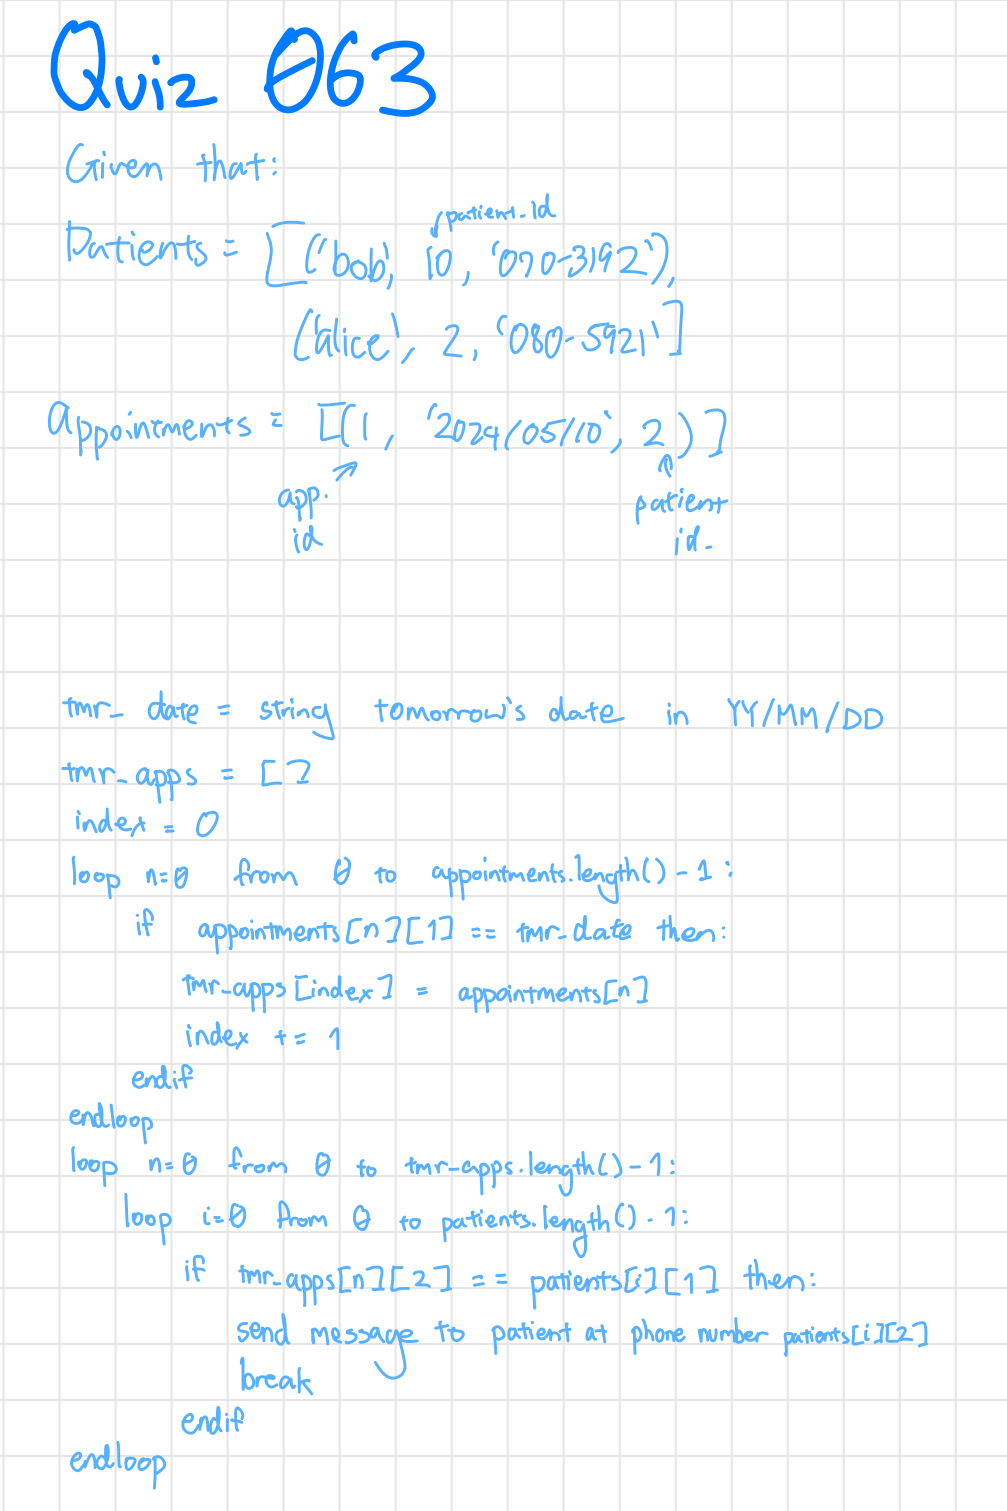 Quiz 063
Given that:
patient_id
Patients = [('bob', 10, '070-3192'),
('alice', 2, '080-5921']
appointments = [(1, '2024/05/10', 2)]
app. patient
id id.
tmr_date = string tomorrow's date in YY/MM/DD
tmr_apps = []
index = 0
loop n=0 from 0 to appointments.length() - 1:
if appointments[n][1] == tmr_date then:
tmr_apps[index] = appointments[n]
index += 1
endif
endloop
loop n=0 from 0 to tmr_apps.length() - 1:
loop i=0 from 0 to patients.length() - 1:
if tmr_apps[n][2] == patients[i][1] then:
send message to patient at phone number patients[i][2]
break
endif
endloop